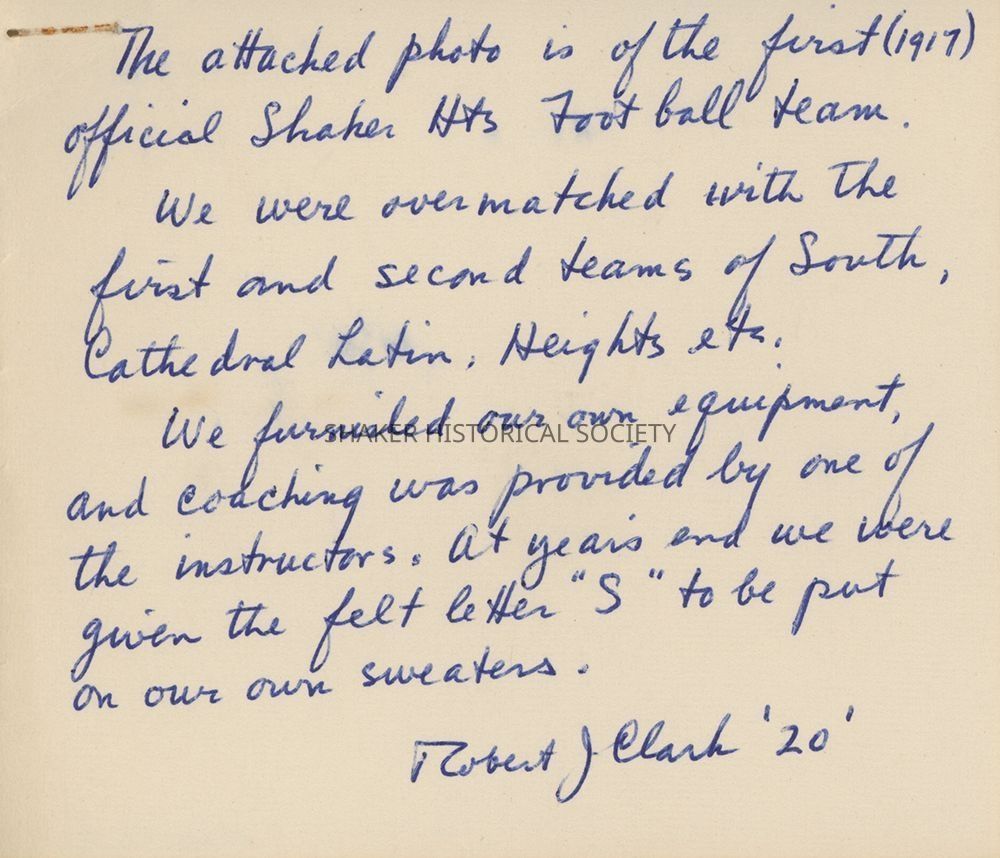 The attached photo is of the first (1917)
official Shaker Hts Football team.
We were overmatched with the
first and second teams of South,
Cathedral Latin, Heights etc.
We furnished our own equipment,
SHAKER HISTORICAL SOCIETY
and coaching was provided by one of
the instructors. At years end we were
given the felt letter "S" to be put
on our own sweaters.
Robert J Clark '20'